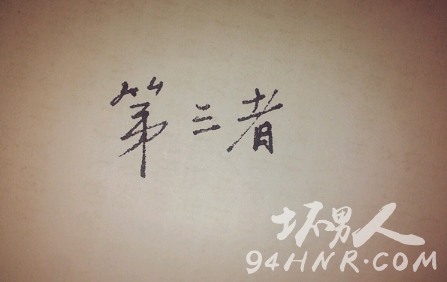 第三者
坏男人
94HNR.COM